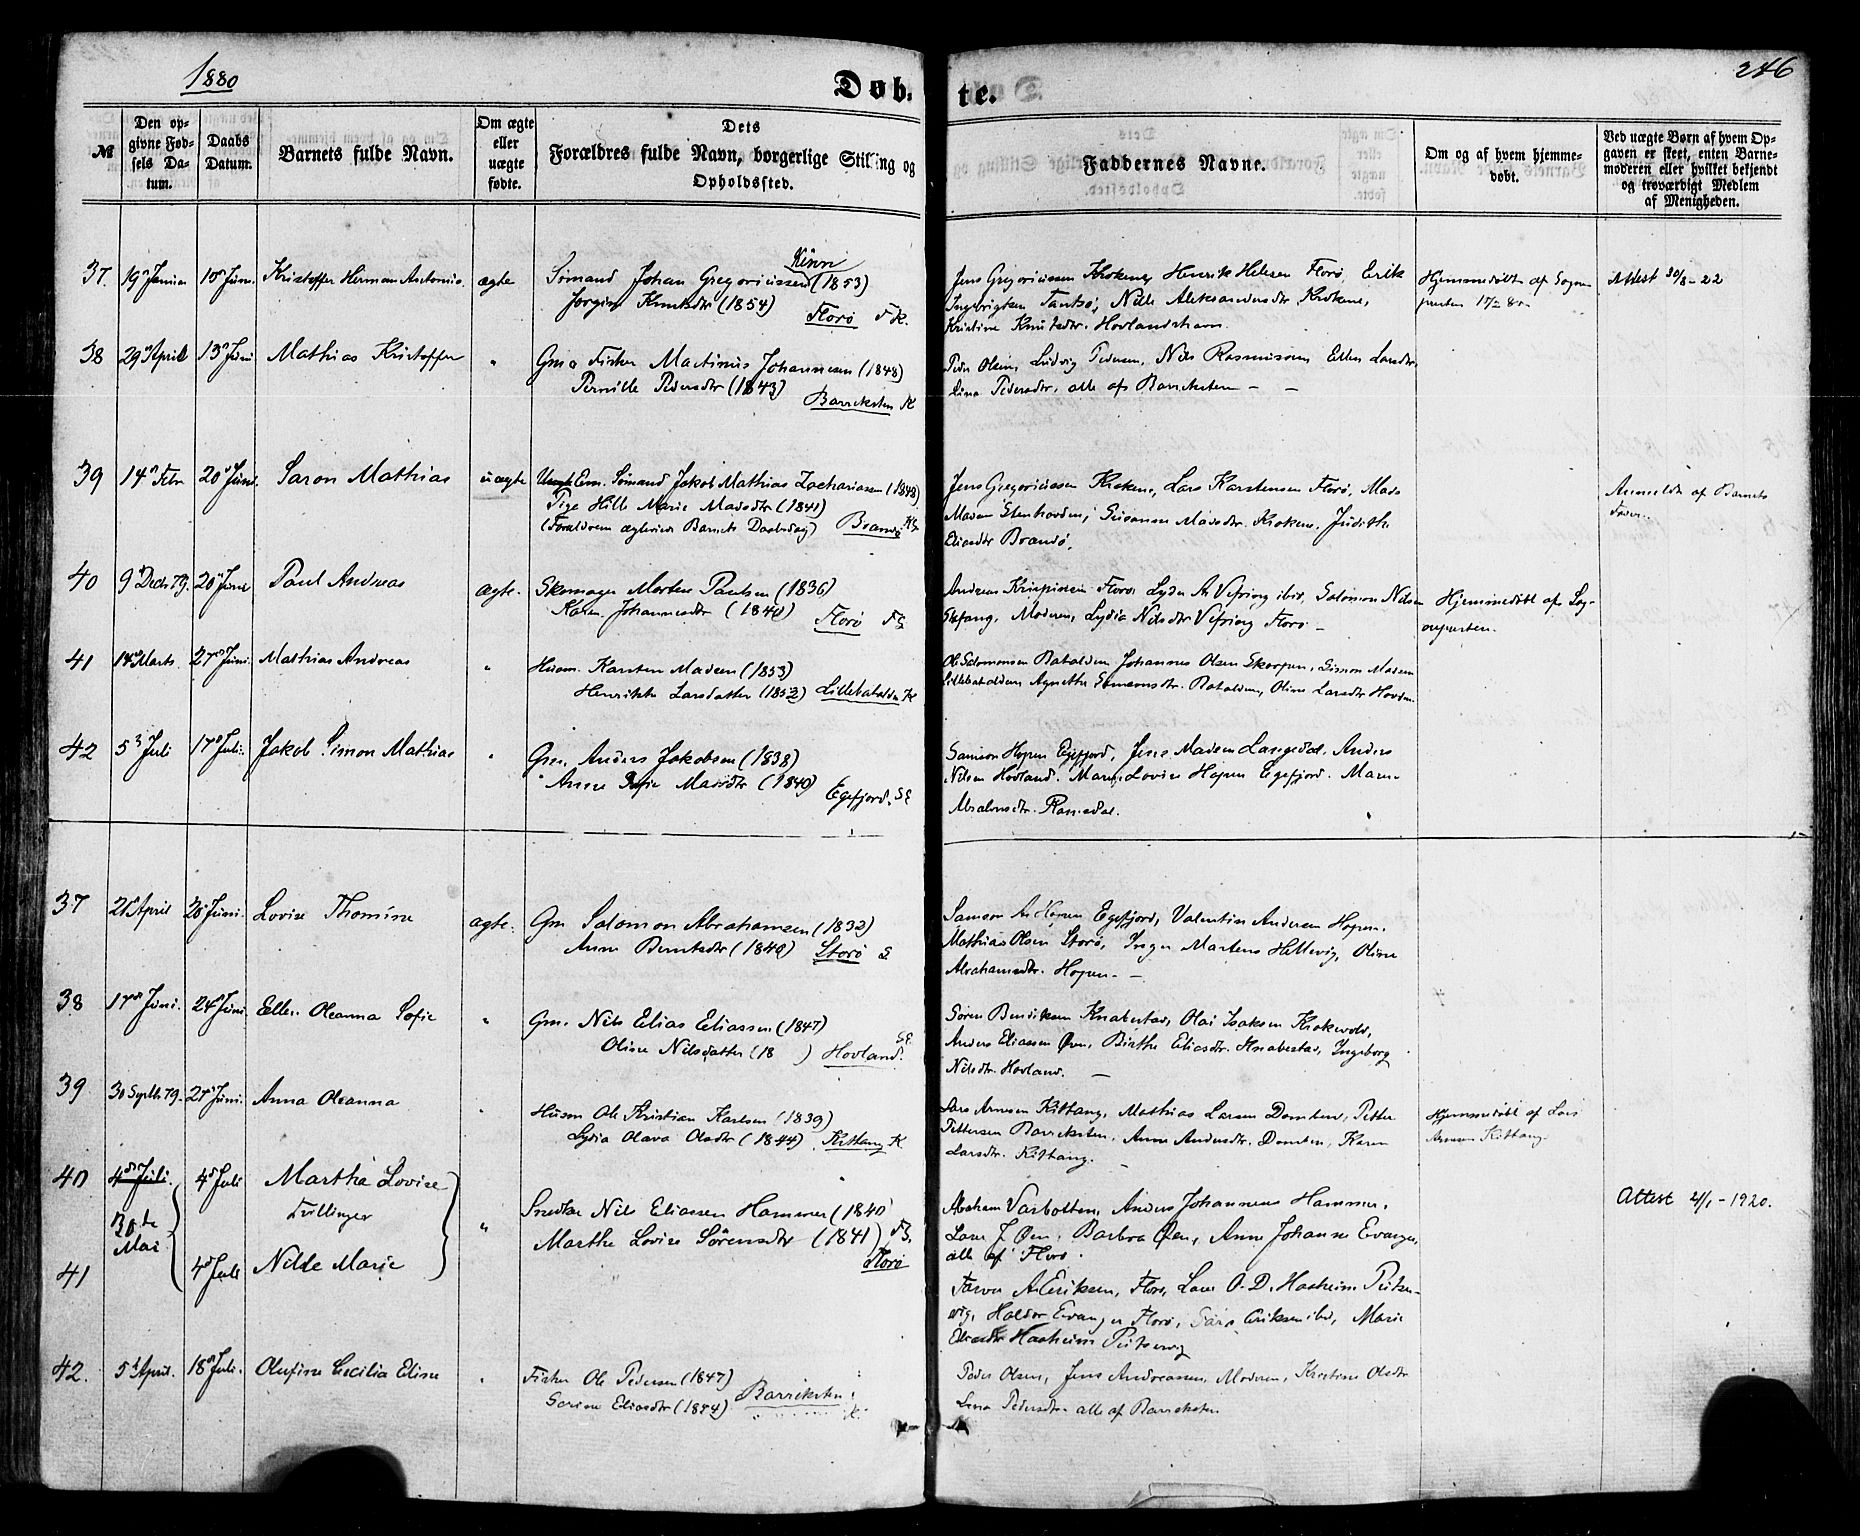 1880
Døb. te.
246
№
Den op-
givne Fød-
sels Da-
tum.
Daabs
Datum.
Barnets fulde Navn.
Om ægte
eller
uægte
fødte.
Dets
Forældres fulde Navn, borgerlige Stilling og
Opholdssted.
Faddernes Navne.
Om og af hvem hjemme-
døbt.
Ved uægte Børn af hvem Op-
gaven er skeet, enten Barne-
moderen eller hvilket bekjendt
og troværdigt Medlem
af Menigheden.
37. 19 Januar Kristoffer Herman Antonius. ægte
Kinn
Sømand Johan Gregoriussen (1853)
Jørgine Knutsdtr (1854) Florø F K.
Jens Gregoriussen Krokene, Henrik Helesen Florø, Erik
Nille Aleksandersdtr Krokene,
Kristine Knutsdtr. Hovlandshavn.
Hjemmedøbt af Sogne-
presten
Attest 30/8 - 22
38 29 April 13 Juni Mathias Kristoffer "
Gm. o Fisker Martinus Johannesen (1848)
Pernille Pedersdtr (1843)
Barreksten K
Peder Olsen, Ludvig Pedersen, Nils Rasmussen, Ellen Larsdtr,
Lina Pedersdtr, alle af Barreksten
39 14 Febr 20 Juni Saron Mathias uægte
Sømand Jakob Mathias Zachariassen (1848)
Pige Hille Marie Madsdtr (1841)
(Forældrene ægteviede Barnets Daabsdag) Brandsø
Jens Gregoriussen Krokene, Lars Karstensen Florø, Mads
Madsen Stenhovden, Susanne Madsdtr. Krokene, Judith
Eliasdtr Brandsø.
Anmeldt af Barnets
Fader.
40 9 Decbr 79. 20 Juni Paul Andreas ægte.
Skomager Morten Paulsen (1836)
Karen Johannesdtr (1840) Florø
Florø, Salomon Nilsen
Moderen, Lydia Nilsdtr Vefring Florø
Hjemmedøbt af Sog-
nepresten.
41 14 Marts. 27 Juni. Mathias Andreas "
Husm. Karsten Madsen (1853)
Henrikke Larsdatter (1852) Lillebatalden K
Ole Salomonsen Batalden, Johannes Olsen Skorpen, Simon Madsen
Lillebatalden, Agnethe Simonsdtr. Batalden, Oline Larsdtr Hovden.
42 5 Juli 17 Juli. Jakob Simon Mathias "
Gm. Anders Jakobsen (1838)
Anne Sofie Madsdtr (1840) Egefjord.
Samson Hopen Egefjord, Jens Madsen Langedal. Anders
Nilsen Hovland. Lovise Hopen Egefjord.
Absalonsdtr. Ramsdal.
37 21 April 20 Juni. Lovise Thomine ægte.
Gm Salomon Abrahamsen (1832)
Anne Berntsdtr (1840) Storø S
Samson Hopen Egefjord, Valentin Andersen Hopen.
Mathias Olsen Storø, Inger Martens Hellevig, Oline
Abrahamsdtr. Hopen.
38 17 Juni. 24 Juni. Ellen Oleanna Sofie "
Gm. Nils Elias Eliassen (1847)
Oline Nilsdatter (18 ) Hovland.
Søren Bendiksen Knabestad, Olai Isaksen Krokevold,
Anders Eliassen Øen, Birthe Eliasdtr. Knabestad, Ingeborg
Nilsdtr. Hovland.
39 30 Septbr 79. 27 Juni. Anna Oleanna "
Husm Ole Kristian Karlsen (1839)
Lydia Olava Olsdtr (1844) Kittang K
Lars Arnesen Kittang, Mathias Larsen Domben, Petter
Pettersen Barreksten, Anne Andersdtr. Domben, Karen
Larsdtr. Kittang.
Hjemmedøbt af Lars
Arnesen Kittang.
40 4 Juli. 4 Juli Martha Lovise
30te
Mai
Tvillinger
41 4 Juli Nilde Marie "
Snedker Nils Eliassen Hammer (1840)
Marthe Lovise Sørensdtr (1841)
Florø
Abraham Varbotten, Anders Johannesen Hammer,
Lars J. Øen, Barbra Øen, Anne Johanne Evanger
alle af Florø.
Eriksen, Florø, Lars O. D. Hasheim
Haldor Evanger Florø, Marie
Hasheim
Attest 2/1 - 1920.
42. 5 April. 18 Juli. Olufine Cecilia Eline "
Fisker Ole Pedersen (1847)
Sørine Eliasdtr (1854) Barreksten
K.
Peder Olsen, Jens Andreassen, Moderen, Kristine Olsdtr
Lina Pedersdtr. alle af Barreksten